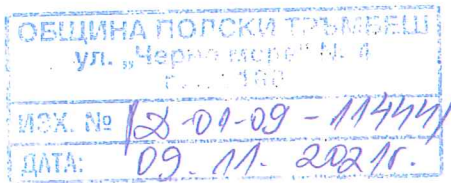 ОБЩИНА ПОЛСКИ ТРЪМБЕШ
ул. „Черно море" № 4
ИЗХ. № Д-01-09-11444/
ДАТА: 09.11.2021г.